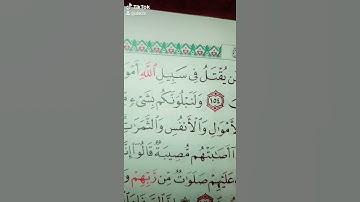 TikTok
ـن يُقْتَلُ فِى سَبِيلِ ٱللَّهِ أَمْوَ
١٥٤ وَلَنَبْلُوَنَّكُم بِشَىْءٍ
ـأَمْوَٰلِ وَٱلْأَنفُسِ وَٱلثَّمَرَٰتِ
أَصَـٰبَتْهُم مُّصِيبَةٌ قَالُوٓا۟ إِنَّا
عَلَيْهِمْ صَلَوَٰتٌ مِّن رَّبِّهِمْ وَ